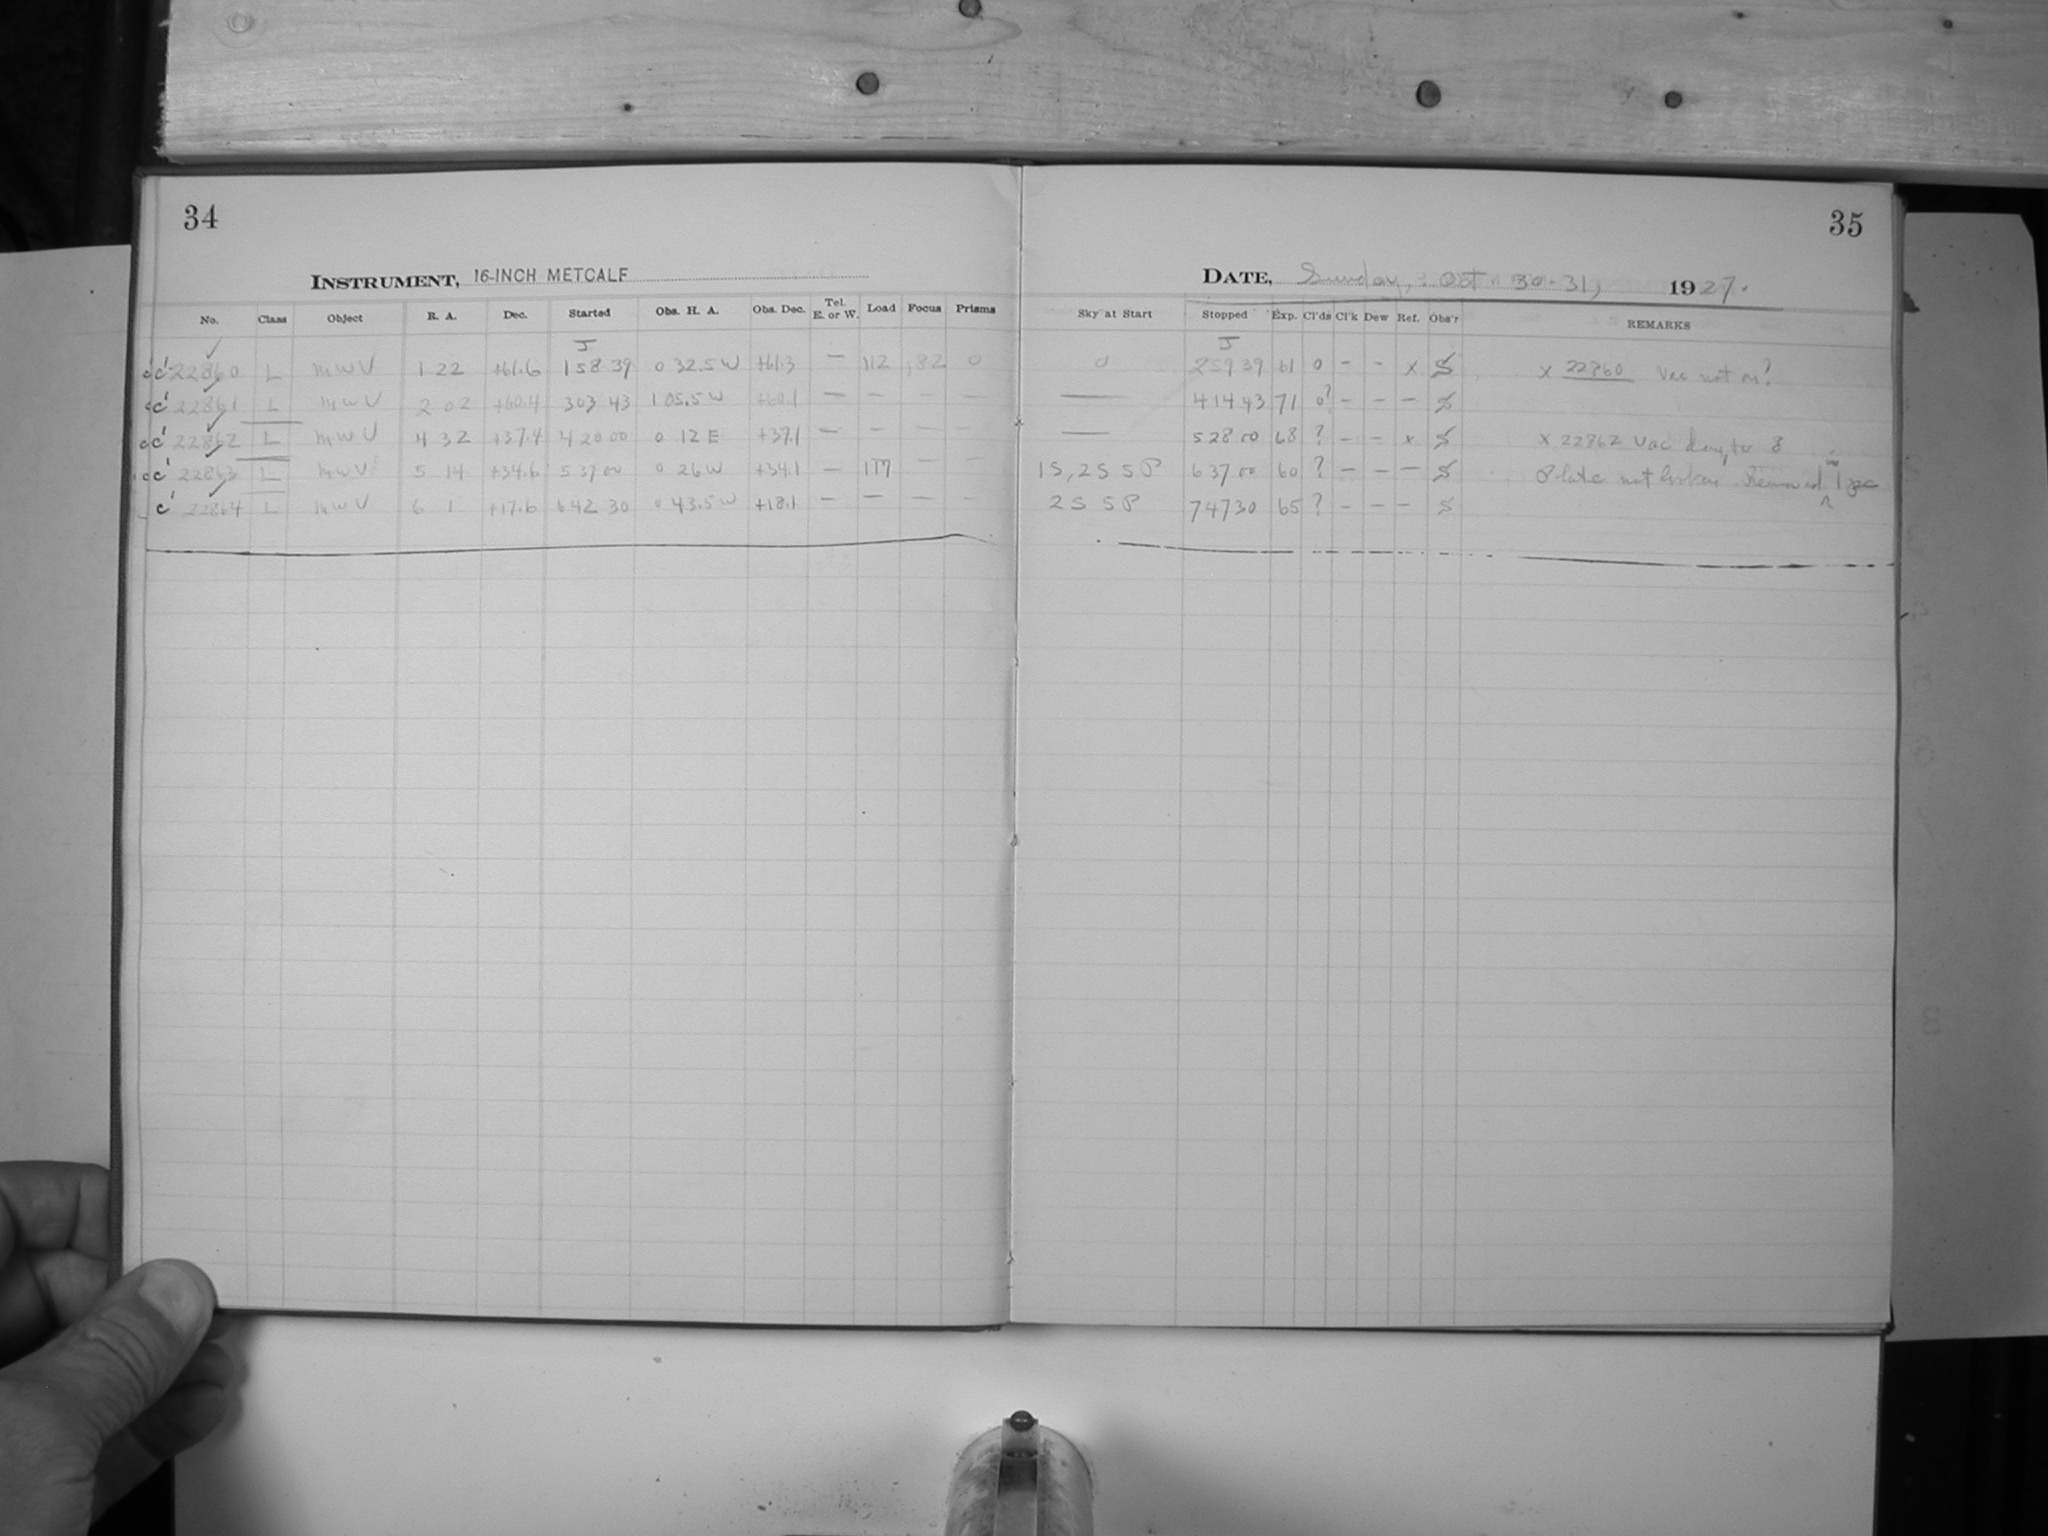 34
INSTRUMENT, 16-INCH METCALF
No. Class Object R. A. Dec. Started Obs. H. A. Obs. Dec. Tel. E. or W. Load Focus Prisms
J
cc' 22860 L MWV 1 22 +61.6 158 39 0 32.5 W +61.3 — 112 .82 0
cc' 22861 L MWV 2 02 +60.4 303 43 1 05.5 W +60.1 — — — —
cc' 22862 L MWV 4 32 +37.4 420 00 0 12 E +37.1 — — — —
cc' 22863 L MWV 5 14 +34.6 537 00 0 26 W +34.1 — — —
c' 22864 L MWV 6 1 +17.6 642 30 0 43.5 W +18.1 — — — —
35
DATE, Sunday, Oct. 30-31, 1927.
Sky at Start Stopped Exp. Cl'ds Cl'k Dew Ref. Obs'r REMARKS
J
0 259 39 61 0 – – x S x 22860 Vac not on?
— 414 43 71 0? – – – S
— 528 00 68 ? – – x S x 22862 Vac to 8
1S, 2S 5P 637 00 60 ? – – – S Plate not broken. Removed 1
2S 5P 747 30 65 ? – – – S